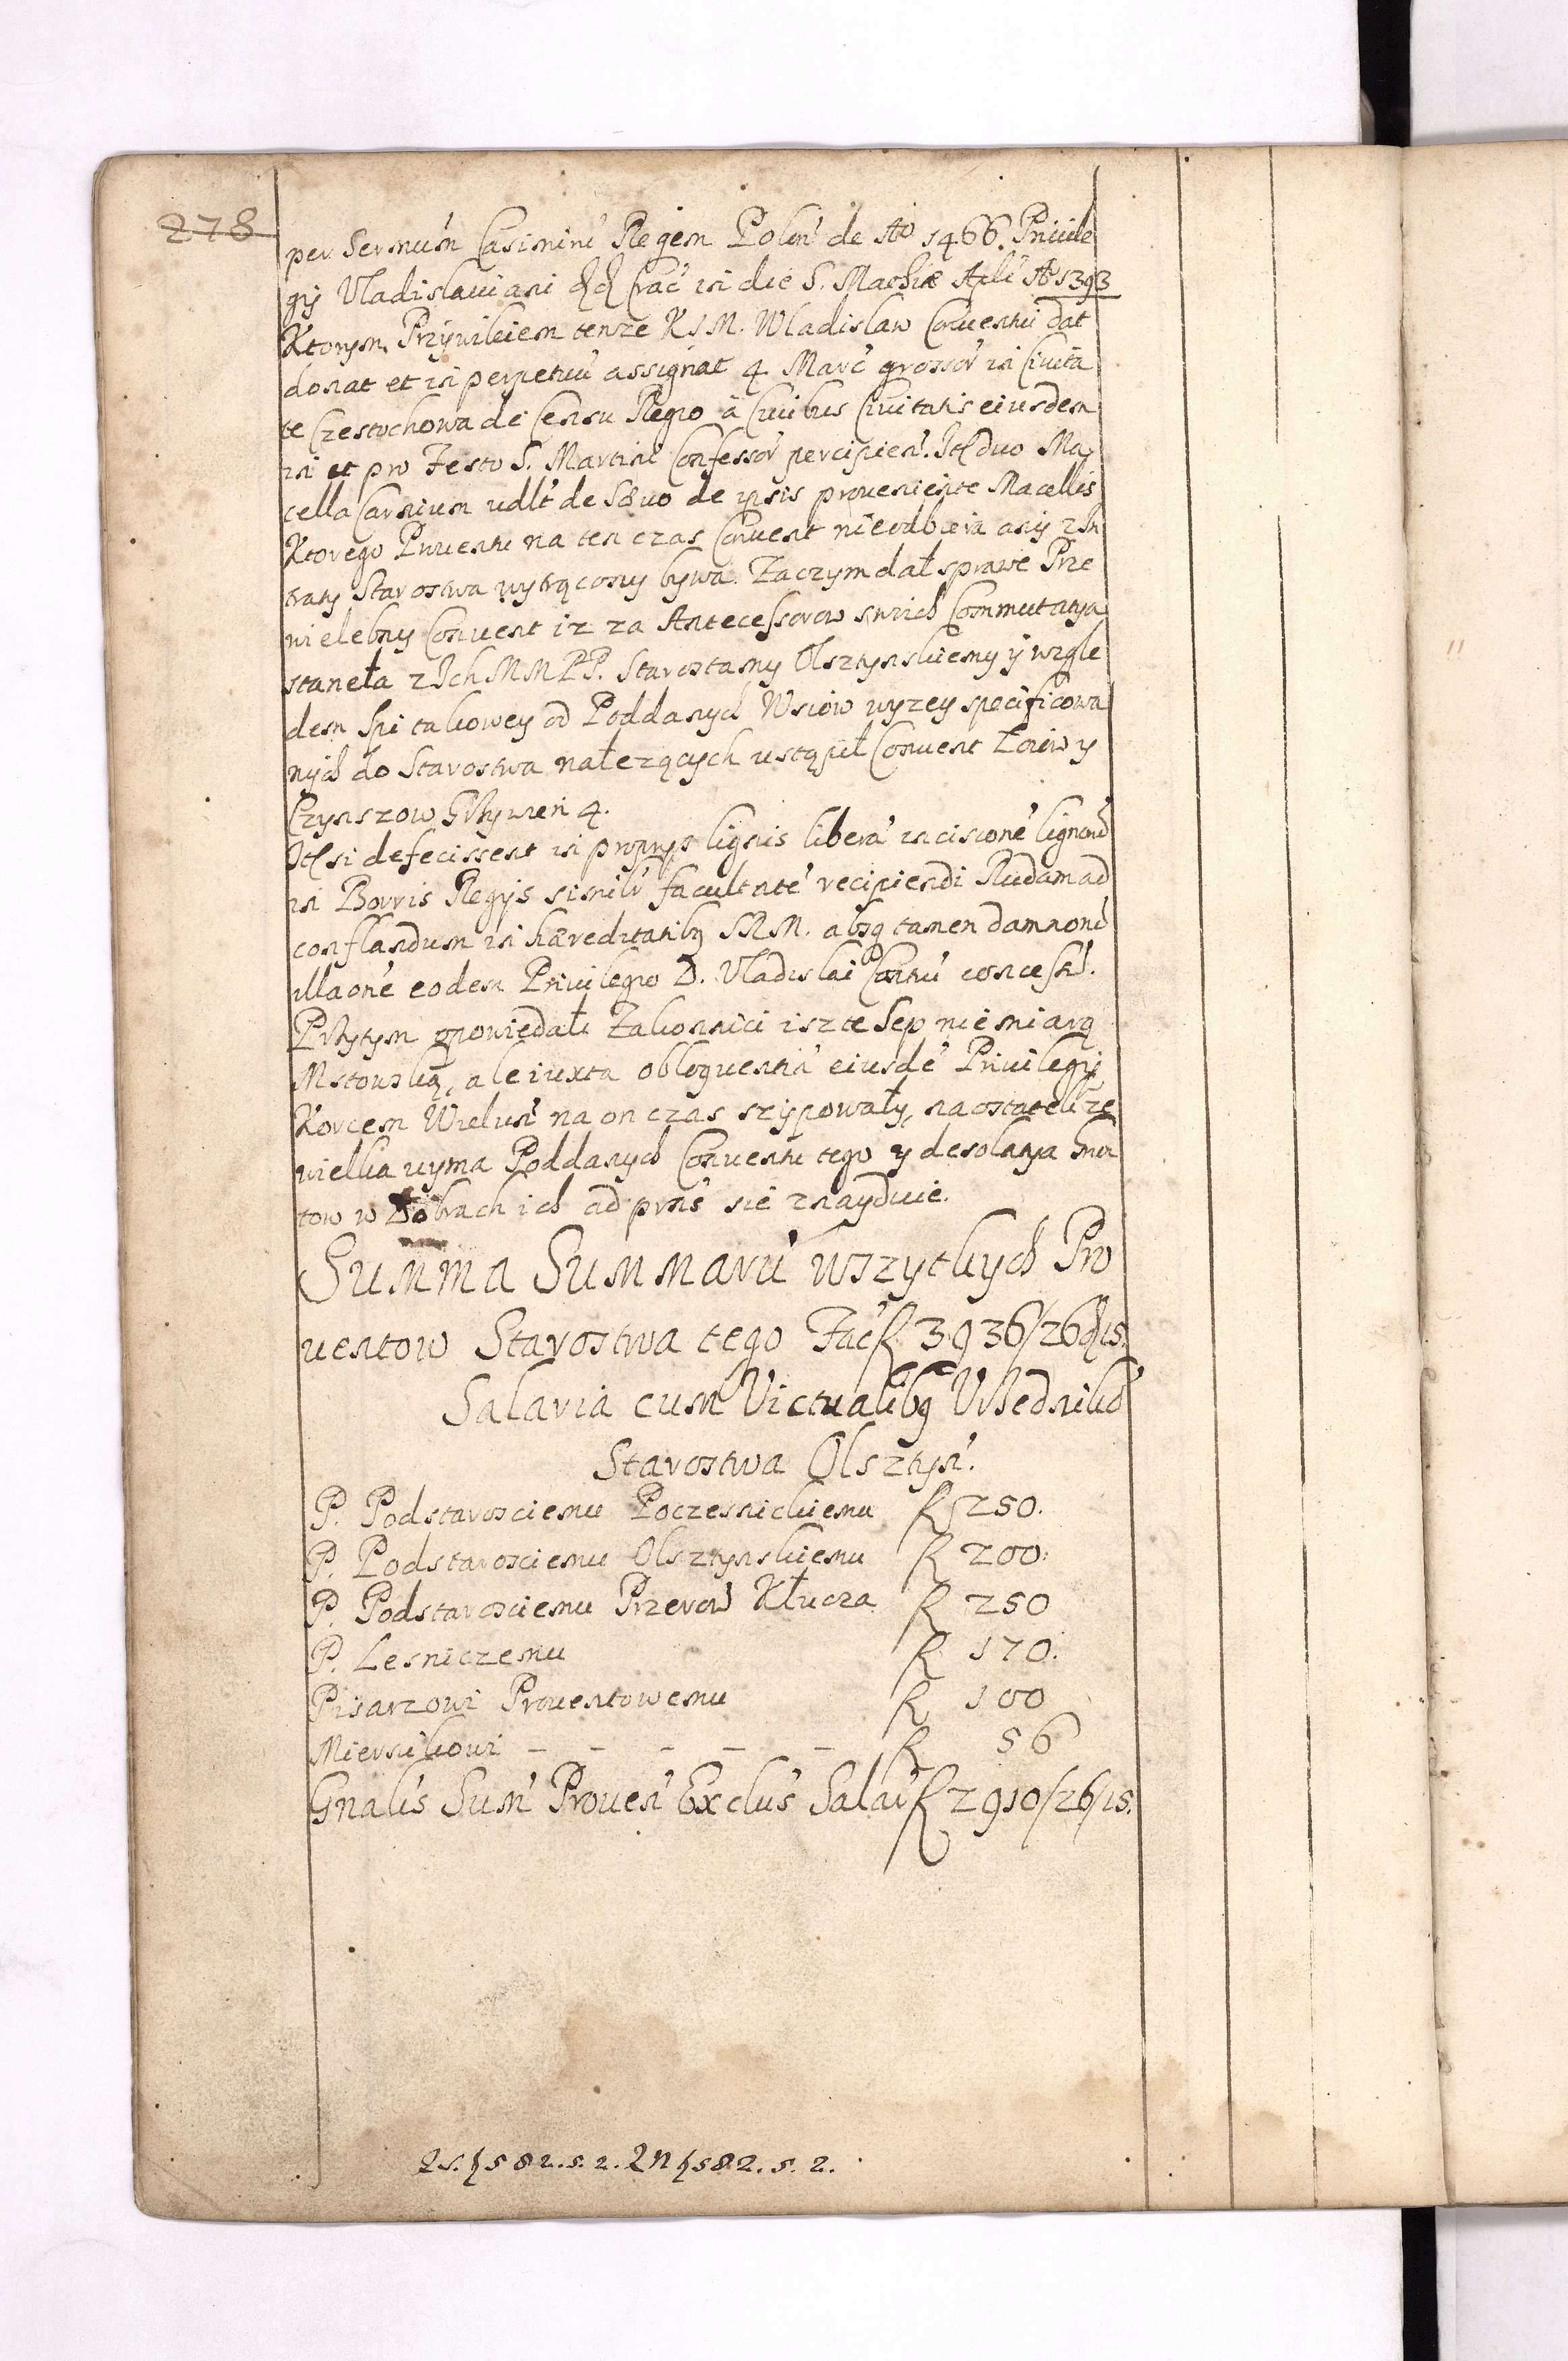 278
per Sermum Casimirū Regem Polon̄ de Aō 1466. Priuile
gij Vladislauiani Crac̄ in die S. Mathiæ Apli Aō 1393
Ktorym Przywileiem tenże K J M. Wladislaw Conuentui dat
donat et in perpetuū assignat 4 Marc̄ grossor̄ in Ciuita
te Czestochowa de Censu Regio à Ciuibus Ciuitatis eiusdem
in et pro Festo S. Martini Confessor̄ percipien̄. Itē duo Ma
cella Carnium vdlt̄ de Sæuo de ipsis proueniente Macellis
Ktorego Prouentu na ten czas Conuent nieodbiera aniy z In
traty Starostwa wytrącony bywa. Zaczym dał sprawę Prze
wielebny Conuent iż za Antecessorow swoich Commutatya
staneła z Ich M M P P. Starostamy Olsztynskiemy y wzglę
dem Spi takowey od Poddanych Wsiów wyzey specificowa
nych do Starostwa nałezących ustąpił Conuent Zoiow y
Czynszow Grzywien 4.
Itē si defecissent in proprys lignis liberā incisionē lignorū
in Borris Regijs similr̄ facultatē recipiendi Rudam ad
conflandum in hæreditatibꝫ S R M. absqꝫ tamen damnonū
illaonē eodem Priuilegio D. Vladislai Conūtui concessū.
Przytym opowiedali Zakonnici isz te Sep nie miarą
Mstowską, ale iuxta obloquentiā eiusdē Priuilegij
Korcem Wielun̄ na on czas szypowały, na ostatek ze
wielka uyma Poddanych Conuentu tego y desolatya Grun
tow w Dobrach ich ad prns̄ sie znayduie.
Summa Summarū wszytkych Pro
uentow Starostwa tego Fac̄ fl 3936/26/15.
Salaria cum Victualibꝫ Vrzednikō
Starostwa Olsztyn̄.
P. Podstarosciemu Poczesnickiemu fl 250.
P. Podstarosciemu Olsztynskiemu fl 200.
P. Podstarosciemu Przerow Kłucza fl 250
P. Lesniczemu fl 170.
Pisarzowi Prouentowemu fl 100
Miernikowi – – – – – fl 56
Gnalis Sum̄ Prouen̄ Exclus̄ Salar̄ fl 2910/26/15.